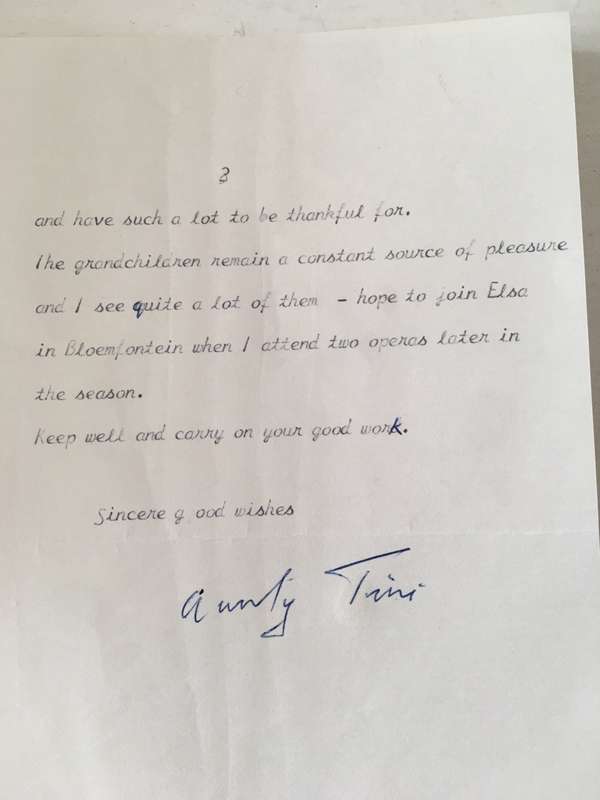 3
and have such a lot to be thankful for.
The grandchildren remain a constant source of pleasure
and I see quite a lot of them - hope to join Elsa
in Bloemfontein when I attend two operas later in
the season.
Keep well and carry on your good work.
Sincere g ood wishes
Aunty Tini